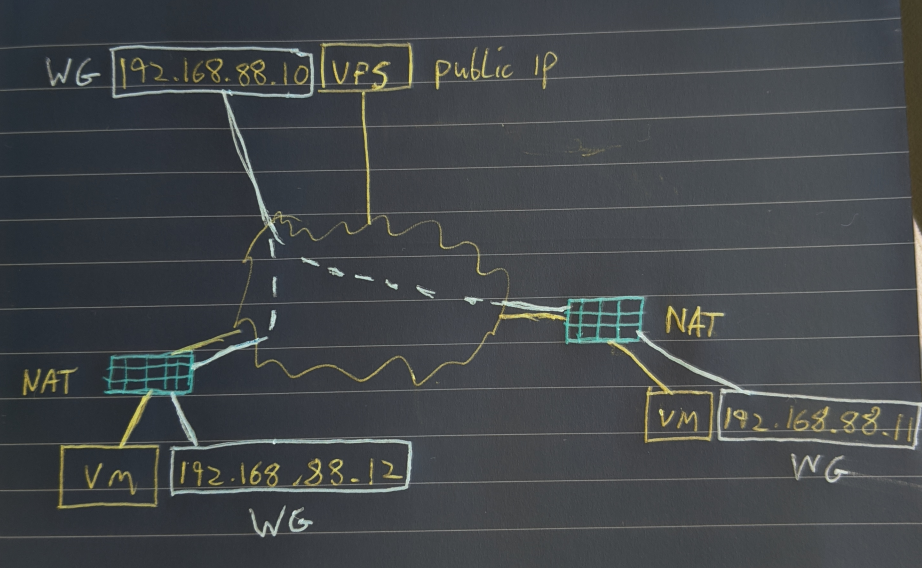 WG 192.168.88.10 VPS public IP
NAT
NAT
VM 192.168.88.11
WG
VM 192.168.88.12
WG